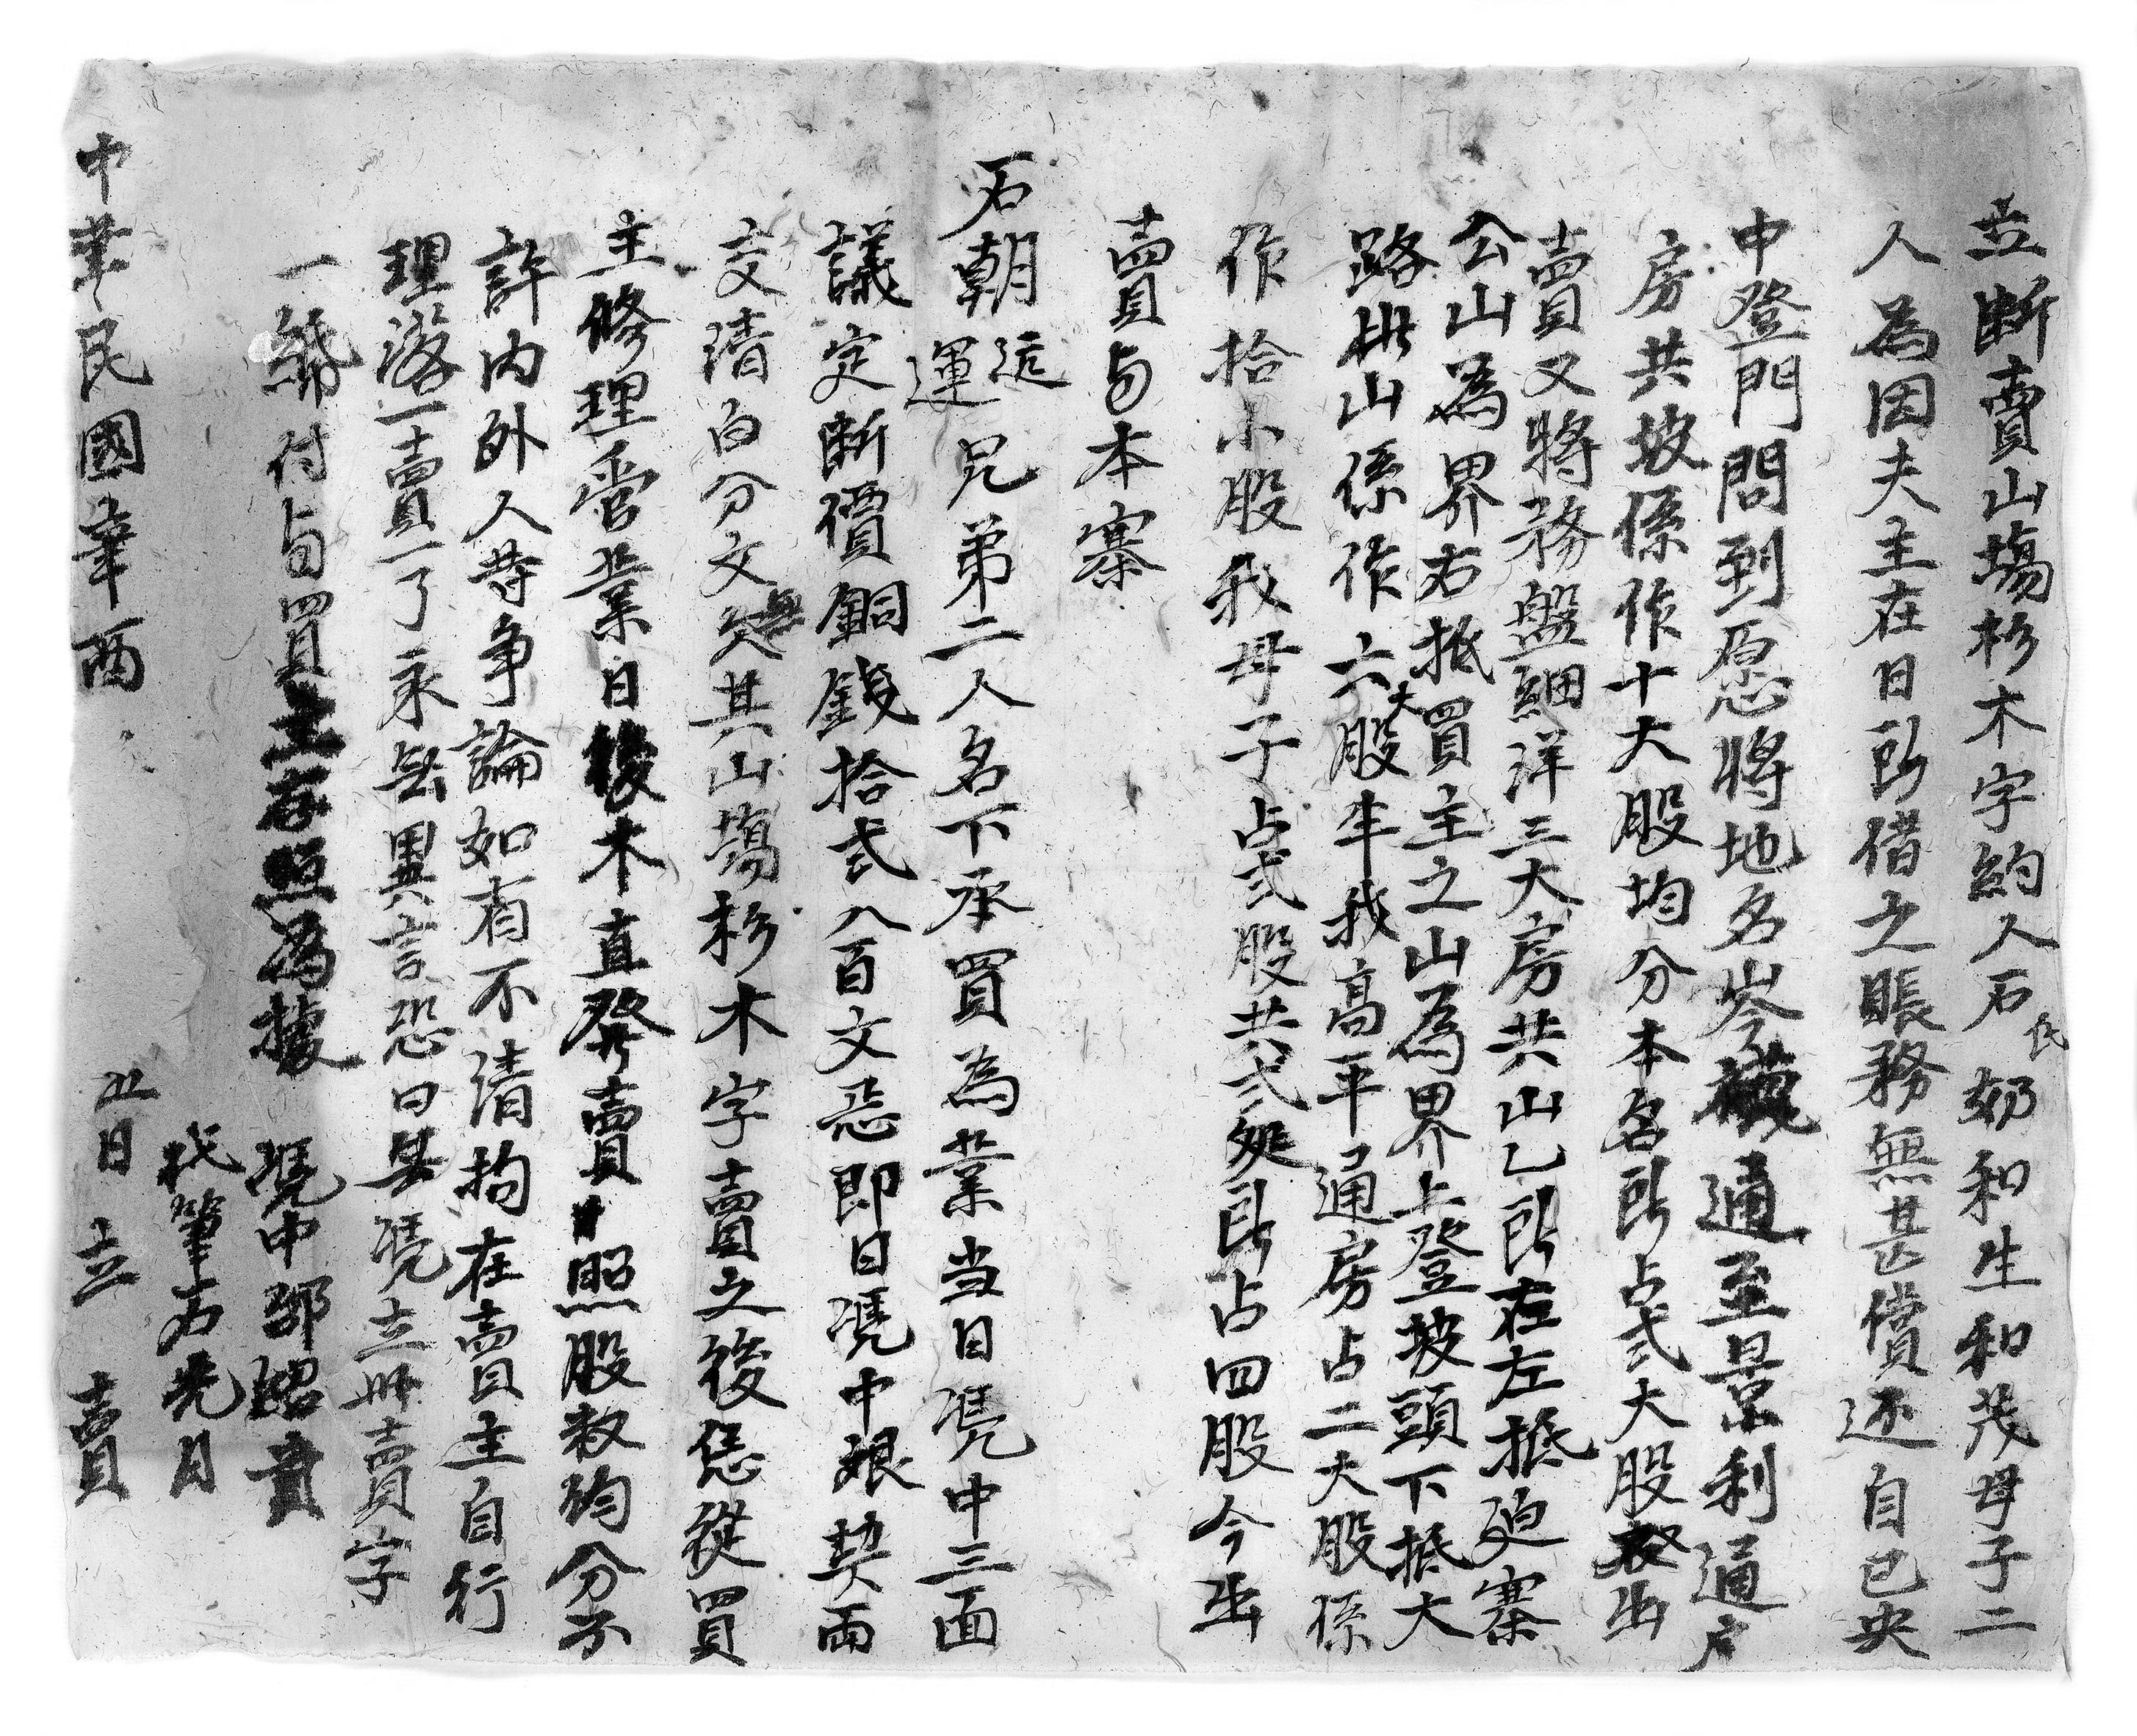 立断賣山塲杉木字約人石氏奶和生和茂母子二
人為因夫主在日所借之賬務無甚償还自己央
中登門問到愿將地名岑通至景利通房
房共坡係作十大股均分本名所占弍大股出
賣又將務盤細洋三大房共山乙所在左抵廹寨
公山為界右抵買主之山為界上登坡頭下抵大
路此山係作六大股年我高平通房占二大股係
作拾小股我母子占弍股共弍处所占四股今出
賣与本寨
石朝运運兄弟二人名下承買為業当日凴中三面
議定断價銅錢拾弍八百文恁即日凴中娘契両
交清白分文無欠其山塲杉木字賣之後恁從買
主修理管業日後木直發賣照股数均分不
許内外人等争論如有不清抅在賣主自行
理落一賣一了永無異言恐口無凴立此賣字
一紙付与買主存照為據 凴中邵紹貴
代筆石光月
中華民國辛酉 五日 立 賣